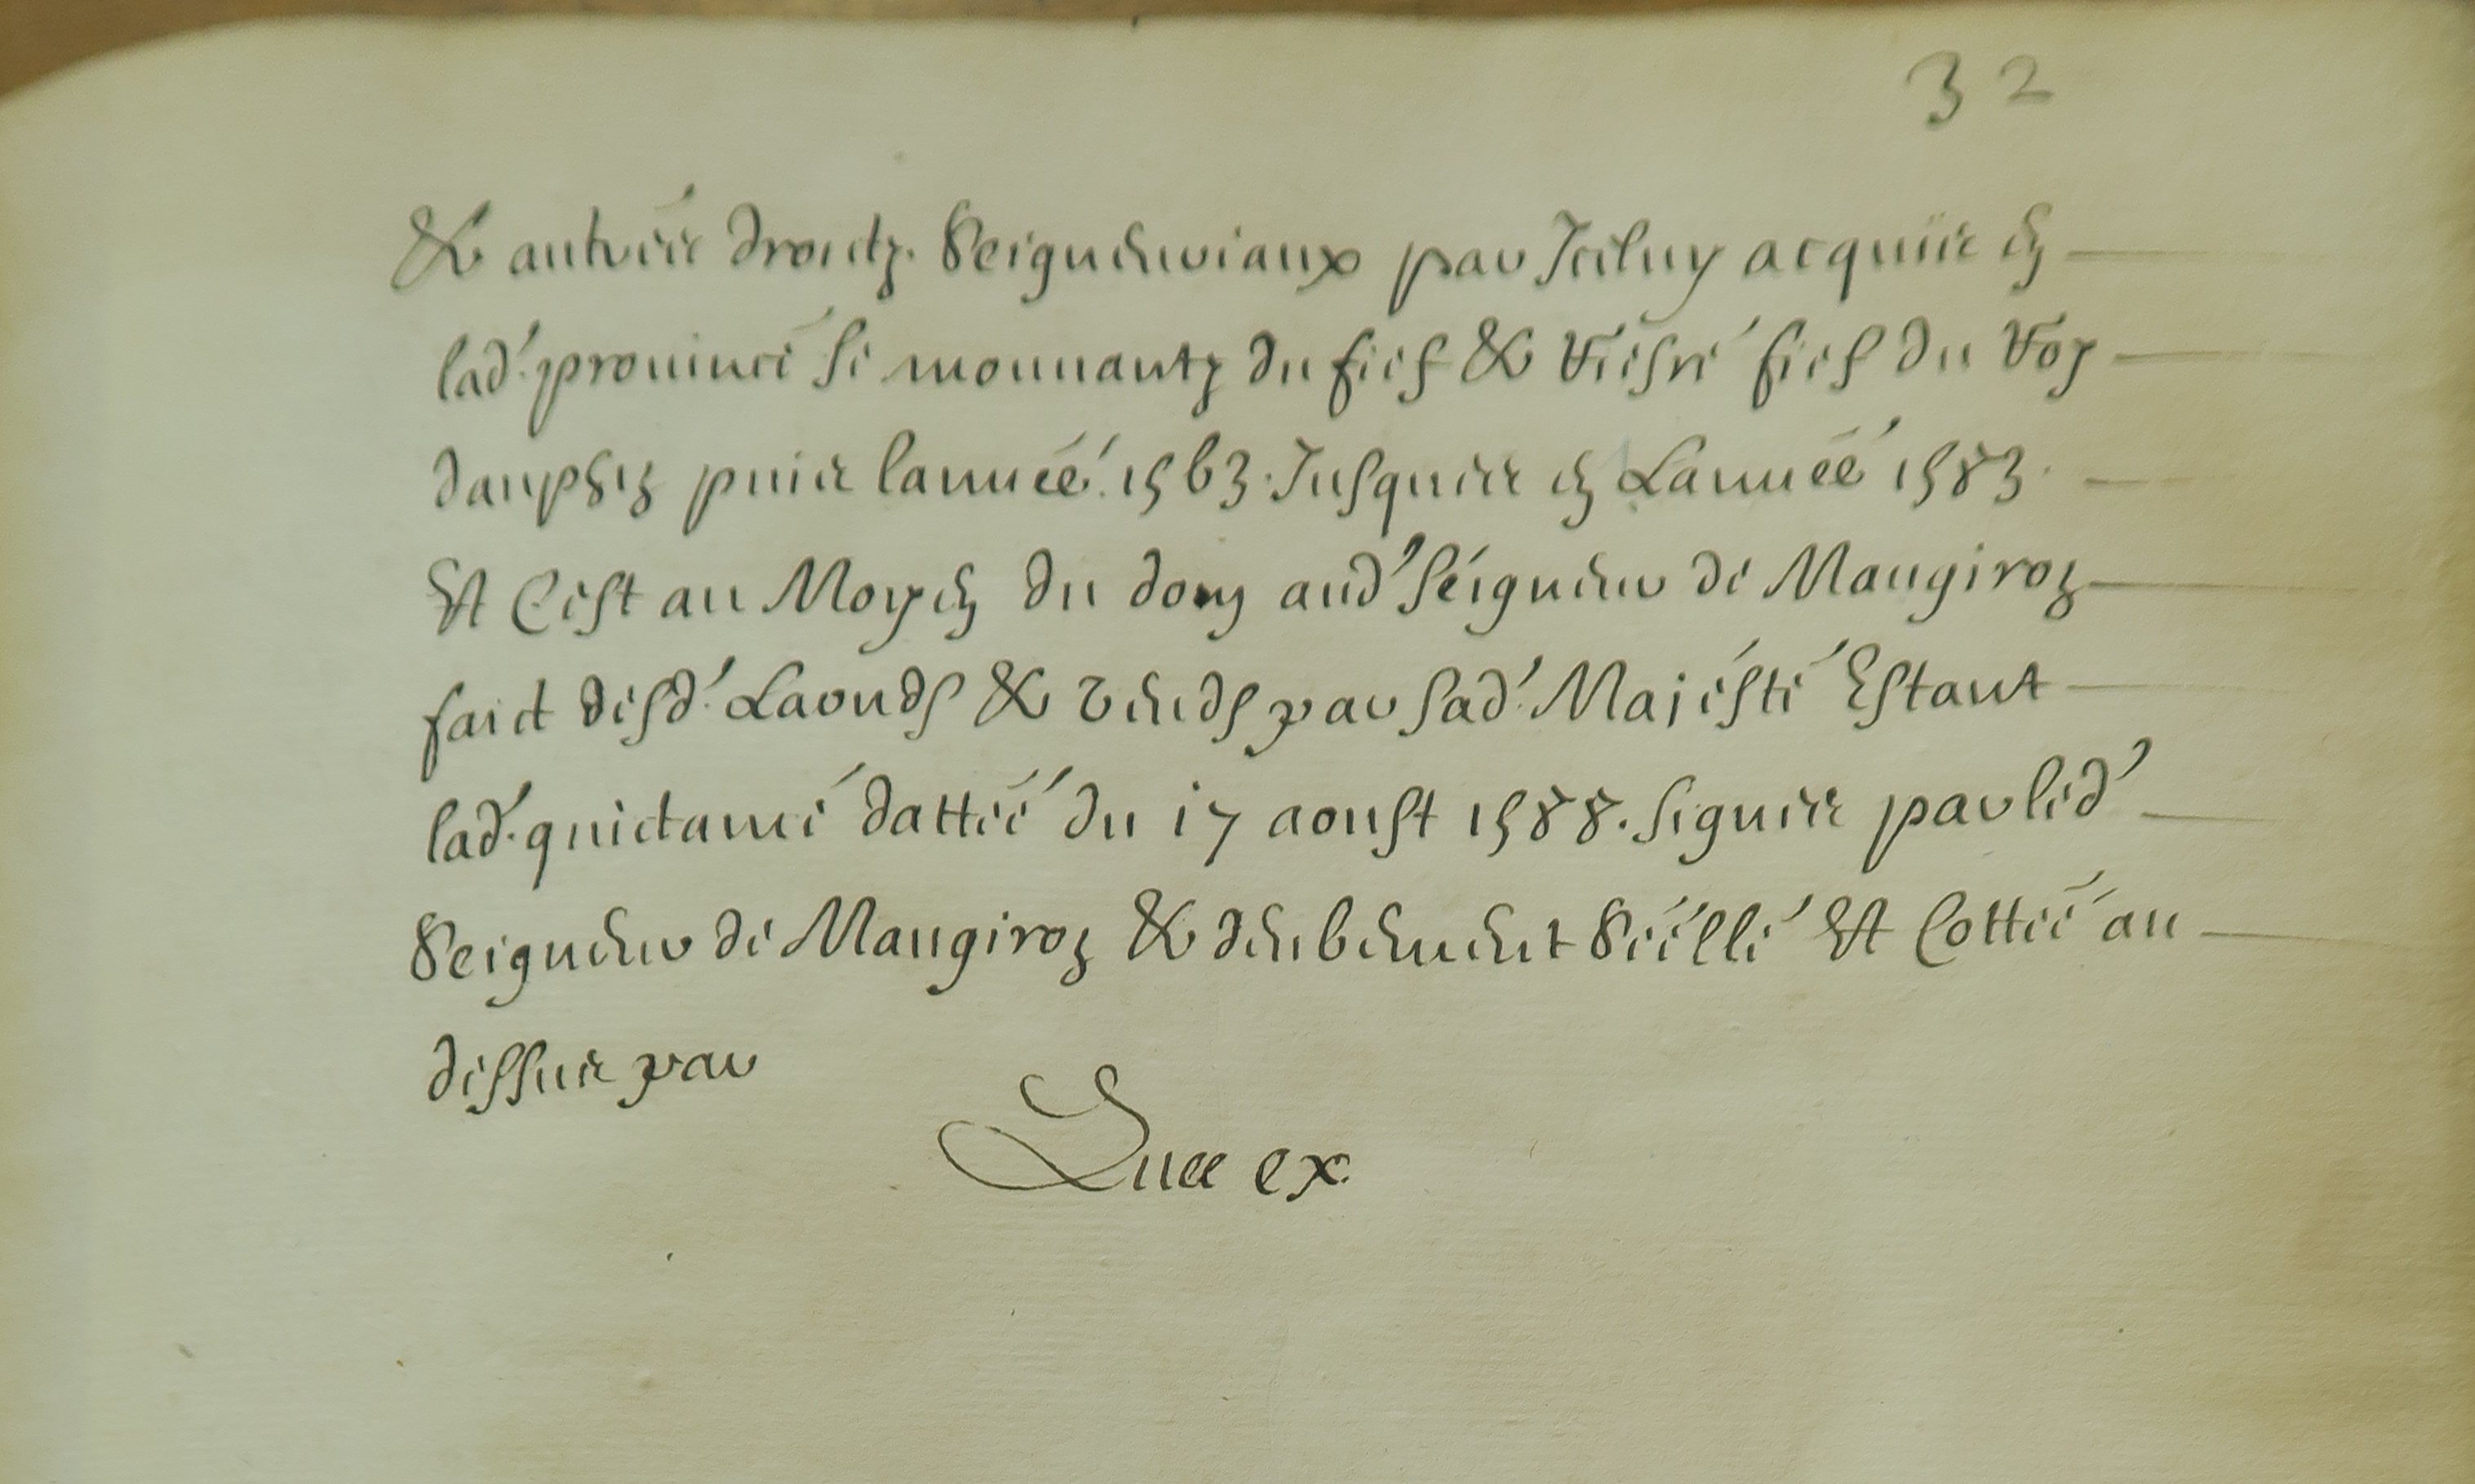 32
& autres droictz. Seigneuriaux par Iceluy acquis en
lad'. prouince se mouuantz du fief & riere fief du Roy
dauphin puis lannéé. 1563. Jusques en Lannéé 1583.
Et Cest au Moyen du don aud' seigneur de Maugiron
faict desd'. Laouds & vends par sad'. Majesté Estant
lad'. quictance dattéé du 17 aoust 1588. signes par led'
Seigneur de Maugiron & deubement Séellé Et Cottéé au
dessus par
Luce ex.